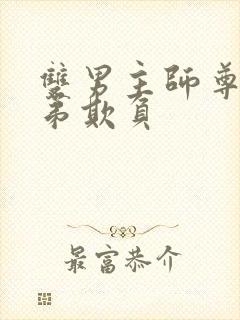 雙男主師尊
弟欺負
最富恭介